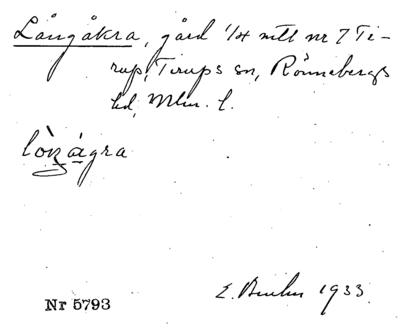 Långåkra, gård 1/4 mtl nr 7 Ti-
rup, Tirups sn, Rönnebergs
hd, Mlm. l.
lòŋágra
E. 1933
Nr 5793